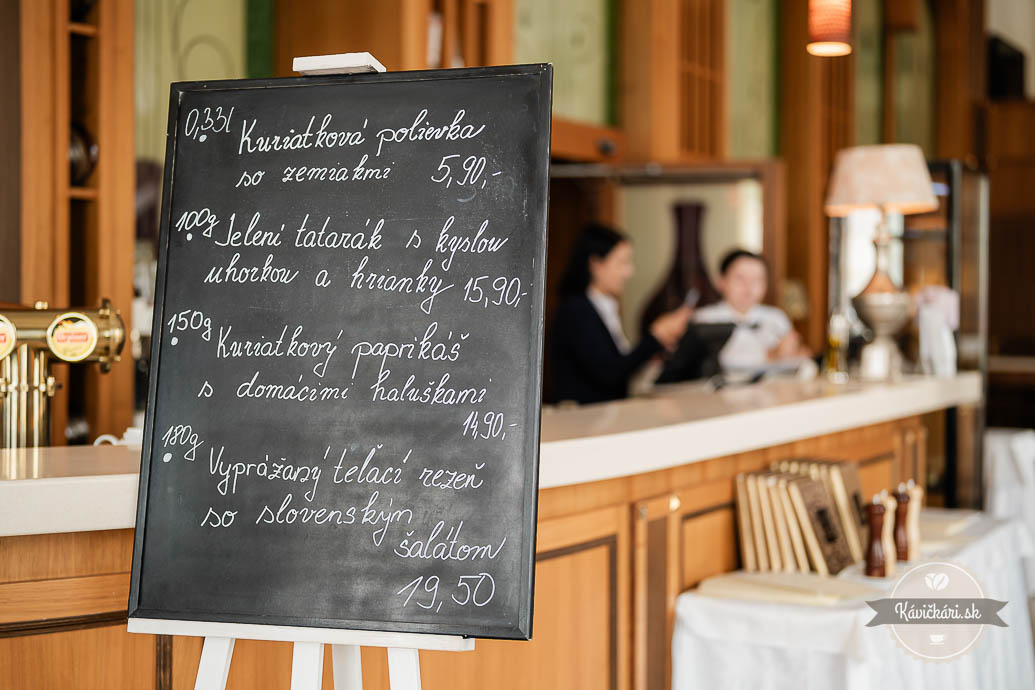 0,33l Kuriatková polievka
so zemiakmi 5,90,-
100g Jelení tatarák s kyslou
uhorkou a hrianky 15,90,-
150g Kuriatkový paprikáš
s domácimi haluškami
14,90,-
180g Vyprážaný teľací rezeň
so slovenským
šalátom
19,50
Kávičkári.sk